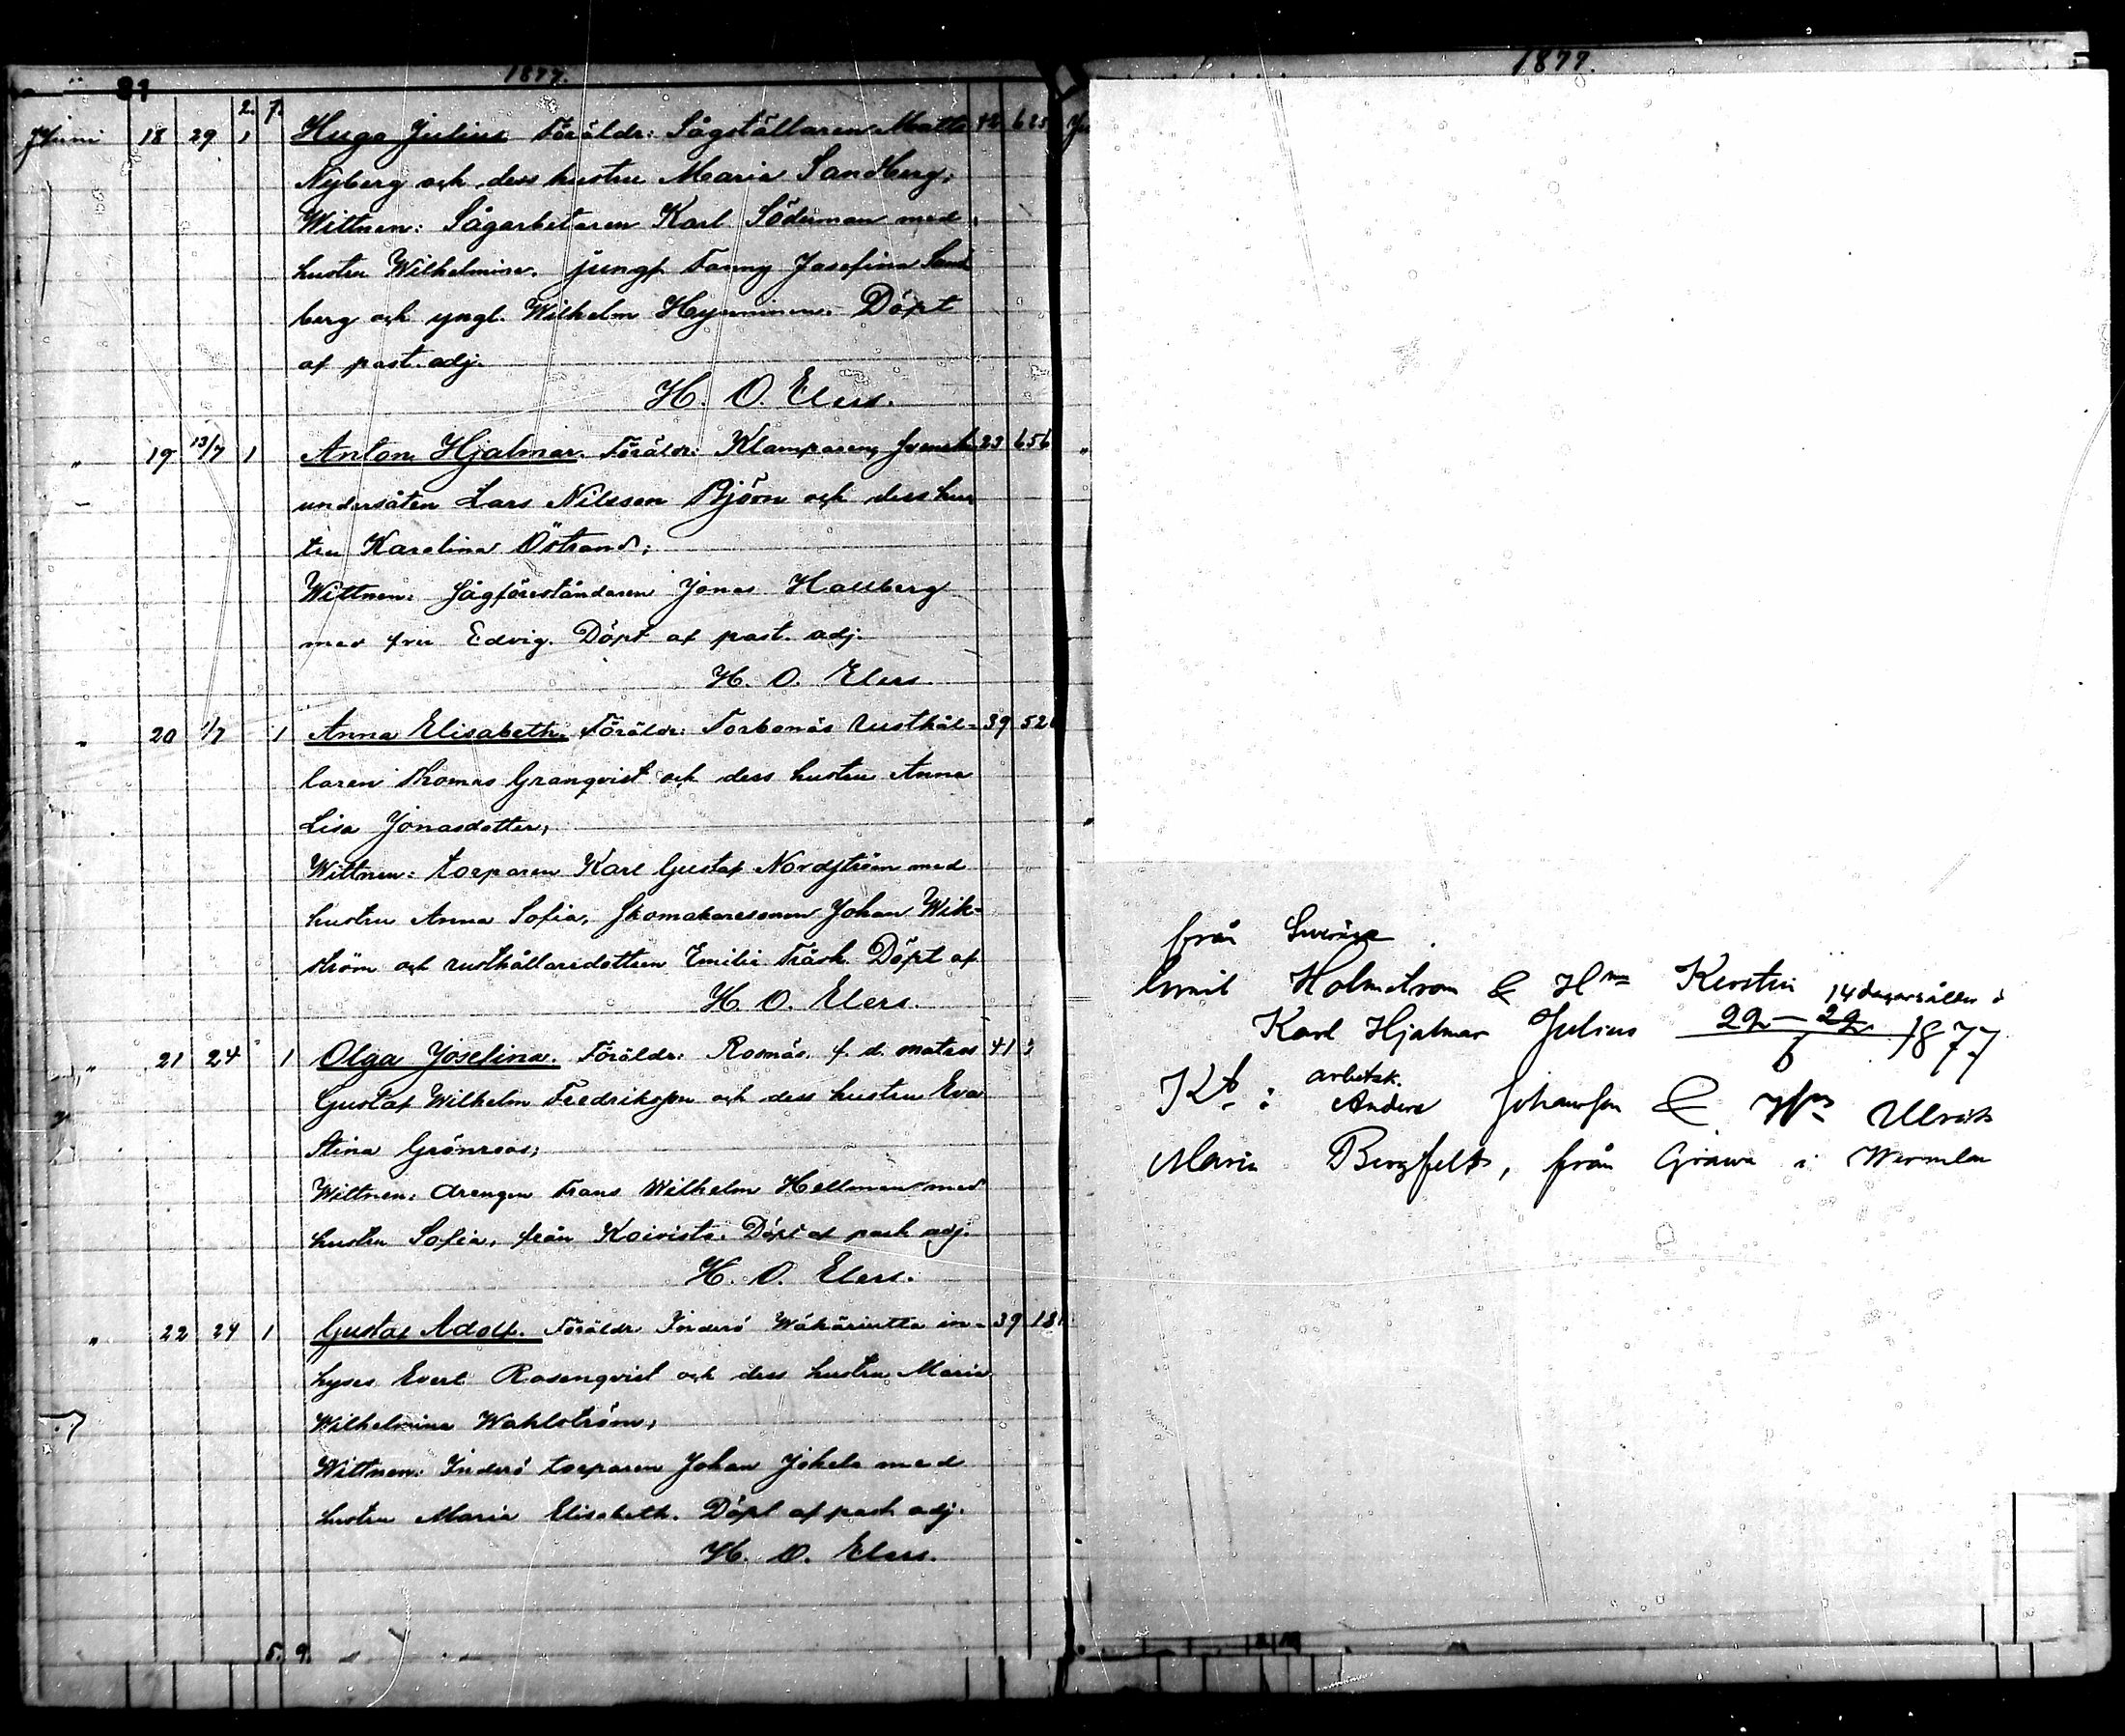 91 1877.
2. 7.
Juni 18 29 1 Hugo Julius Föräldr: Sågställaren Matts 42 625
Nyberg och dess hustru Maria Sandberg;
Wittnen: Sågarbetaren Karl Söderman med
hustru Wilhelmina, jungf. Fanny Josefina Sand
berg och yngl. Wilhelm Hynninen. Döpt
af past. adj.
H. O. Elers.
" 19 13/7 1 Anton Hjalmar. Föräldr: Klamparen, svensk 23 656
undersåten Lars Nilsson Björn och dess hus
tru Karolina Östrand;
Wittnen: Sågföreståndaren Jonas Hallberg
med fru Edvig. Döpt af past. adj.
H. O. Elers.
" 20 1/7 1 Anna Elisabeth. Föräldr: Torbonäs rusthål- 39 52
laren Thomas Granqvist och dess hustru Anna
Lisa Jonasdotter;
Wittnen: torparen Karl Gustaf Nordström med
hustru Anna Sofia, Skomakaresonen Johan Wik-
ström och rusthållaredottren Emilia Träsk. Döpt af
H. O. Elers.
" 21 24 1 Olga Josefina. Föräldr: Rosnäs f. d. matros 41
Gustaf Wilhelm Fredriksson och dess hustru Eva
Stina Grönroos;
Wittnen: drengen Frans Wilhelm Hellman med
hustru Sofia, från Koivisto. Döpt af past. adj.
H. O. Elers.
" 22 24 1 Gustaf Adolf. Föräldr Inderö in- 39 181
hyses Evert Rosenqvist och dess hustru Maria
Wilhelmina Wahlström;
Wittnen: Inderö torparen Johan Jokela med
hustru Maria Elisabeth. Döpt af past. adj.
H. O. Elers.
5. 9.
1877.
från Sverige
Emil Holmstrom & Kerstin
14 dagar
Karl Hjalmar Julius 22 — 29 1877
6
arbetsk.
Anders Johansson &
Maria Bergfelt, från Grawa i